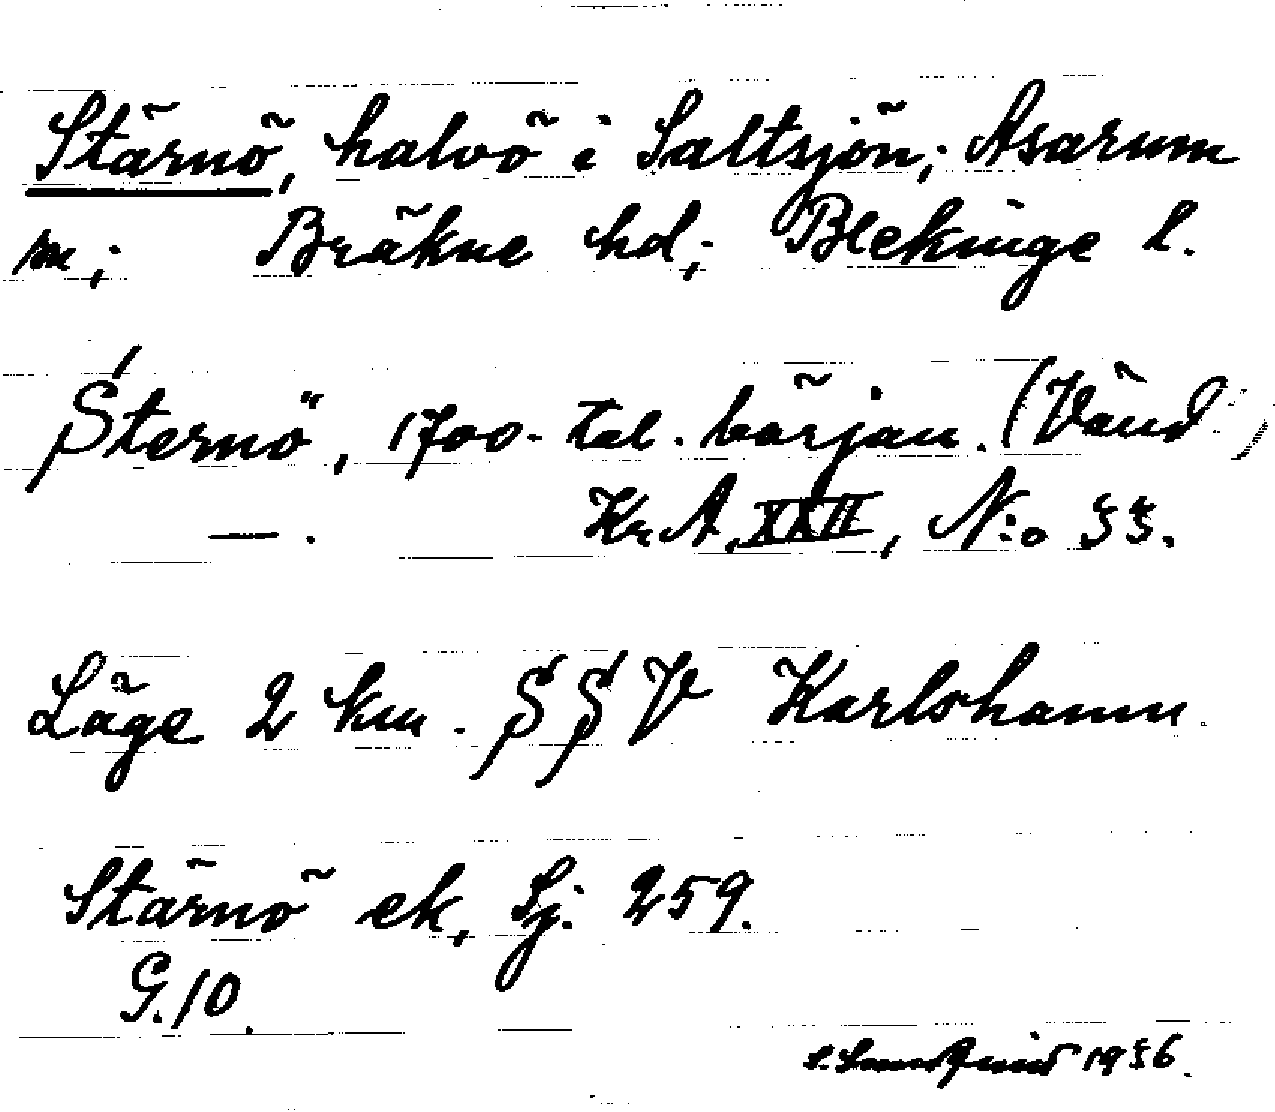 Stärnö, halvö i Saltsjön; Asarum
sn; Bräkne hd; Blekinge l.
Sternö, 1700-tal. början. (Vänd)
— . KrA. XXII, N:o 55.
Läge 2 km. SSV Karlshamn.
Stärnö ek, Sj. 259.
G. 10.
1956.